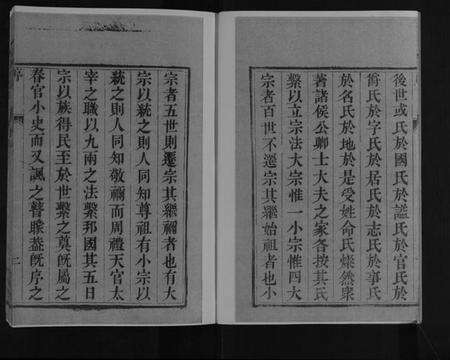 後世或氏於國氏於諡氏於官氏於
爵氏於字氏於居氏於志氏於事氏
於名氏於地於是受姓命氏燦然衆
著諸侯公卿士大夫之家各按其氏
繫以立宗法大宗惟一小宗惟四大
宗者百世不遷宗其繼始祖者也小
宗者五世則遷宗其繼禰者也有大
宗以統之則人同知尊祖有小宗以
統之則人同知敬禰而周禮天官太
宰之職以九兩之法繫邦國其五曰
宗以族得民至於世繫之奠旣屬之
春官小史而又諷之瞽矇蓋旣序之
序
二